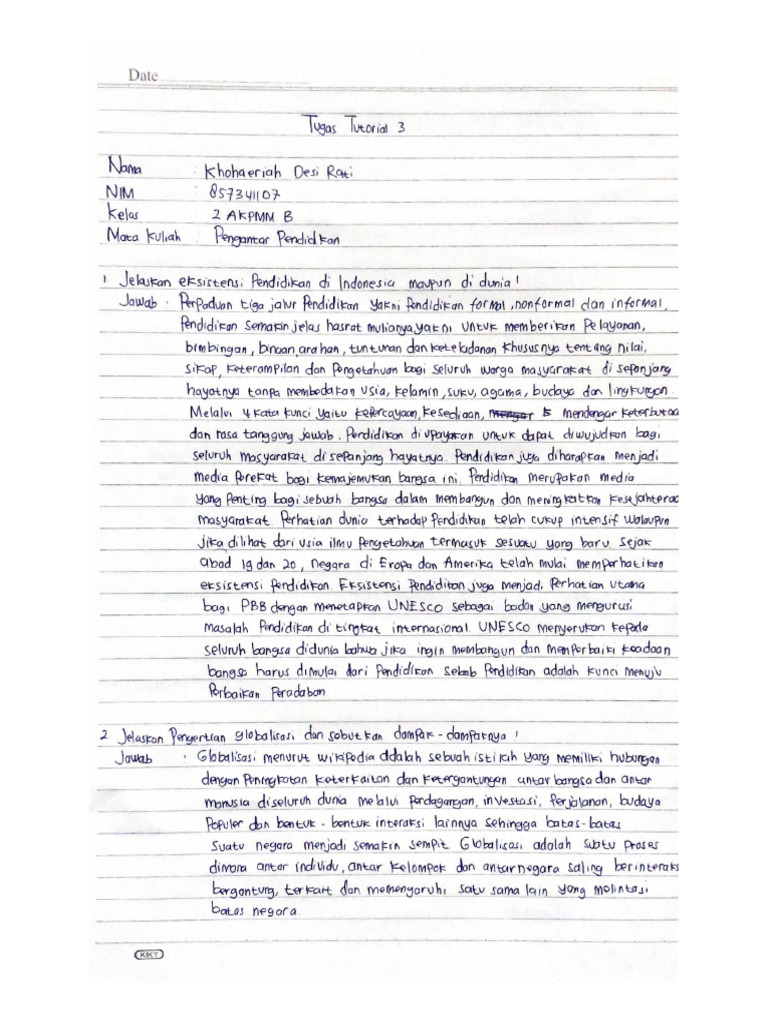 Date
Tugas Tutorial 3
Nama : Khohaeriah Desi Rati
NIM : 857341107
Kelas : 2 AKPMM B
Mata Kuliah : Pengantar Pendidkan
1 Jelaskan eksistensi Pendidikan di Indonesia maupun di dunia!
Jawab : Perpaduan tiga jalur Pendidikan yakni Pendidikan formal, nonformal dan informal,
Pendidikan semakin jelas hasrat mulianya, yakni untuk memberikan Pelayanan,
bimbingan, binaan, arahan, tuntunan dan keteladanan khususnya tentang nilai,
sikap, keterampilan dan Pengetahuan bagi seluruh warga masyarakat di sepanjang
hayatnya tanpa membedakan usia, kelamin, suku, agama, budaya dan lingkungan.
Melalui 4 kata kunci yaitu kepercayaan, kesediaan, mendengar keterbukaa
dan rasa tanggung jawab. Pendidikan diupayakan untuk dapat diwujudkan bagi
seluruh masyarakat di sepanjang hayatnya. Pendidikan juga diharapkan menjadi
media Perekat bagi kemajemukan bangsa ini. Pendidikan merupakan media
yang Penting bagi sebuah bangsa dalam membangun dan meningkatkan kesejahterac
masyarakat. Perhatian dunia terhadap Pendidikan telah cukup intensif walaupun
jika dilihat dari usia ilmu Pengetahuan termasuk sesuatu yang baru. Sejak
abad 19 dan 20, negara di Eropa dan Amerika telah mulai memperhatikan
eksistensi Pendidikan. Eksistensi Pendidikan juga menjadi Perhatian utama
bagi PBB dengan menetapkan UNESCO sebagai badan yang mengurusi
masalah Pendidikan di tingkat internasional. UNESCO menyerukan kepada
seluruh bangsa didunia bahwa jika ingin membangun dan memperbaiki keadaan
bangsa harus dimulai dari Pendidikan sebab Pendidikan adalah kunci menuju
Perbaikan Peradaban
2 Jelaskan Pengertian globalisasi dan sebutkan dampak-dampaknya!
Jawab : Globalisasi menurut wikipedia adalah sebuah istilah yang memiliki hubungan
dengan Peningkatan keterkaitan dan ketergantungan antar bangsa dan antar
manusia diseluruh dunia melalui Perdagangan, investasi, Perjalanan, budaya
Populer dan bentuk-bentuk interaksi lainnya sehingga batas-batas
suatu negara menjadi semakin sempit. Globalisasi adalah suatu Proses
dimana antar individu, antar kelompok dan antar negara saling berinteraks
bergantung, terkait dan memengaruhi satu sama lain yang melintasi
batas negara.
KKY